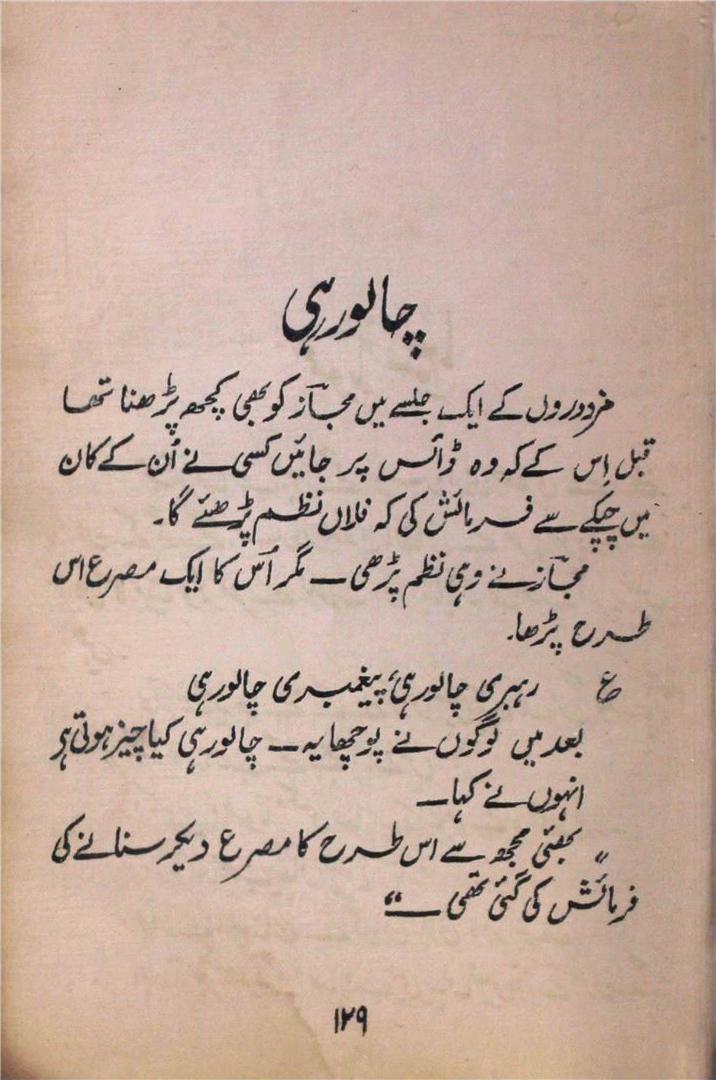 چالو رہی
مزدوروں کے ایک جلسے میں مجازؔ کو بھی کچھ پڑھنا تھا
قبل اِس کے کہ وہ ڈائس پر جائیں کسی نے اُن کے کان
میں چپکے سے فرمائش کی کہ فلاں نظم پڑھئے گا۔
مجازؔ نے وہی نظم پڑھی ــ مگر اُس کا ایک مصرع اس
طرح پڑھا۔
ع رہبری چالو رہی، پیغمبری چالو رہی
بعد میں لوگوں نے پوچھا یہ ــ چالو رہی کیا چیز ہوتی ہے
انہوں نے کہا ــ
"بھئی مجھ سے اس طرح کا مصرع دیکر سنانے کی
فرمائش کی گئی تھی ــ"
۱۲۹